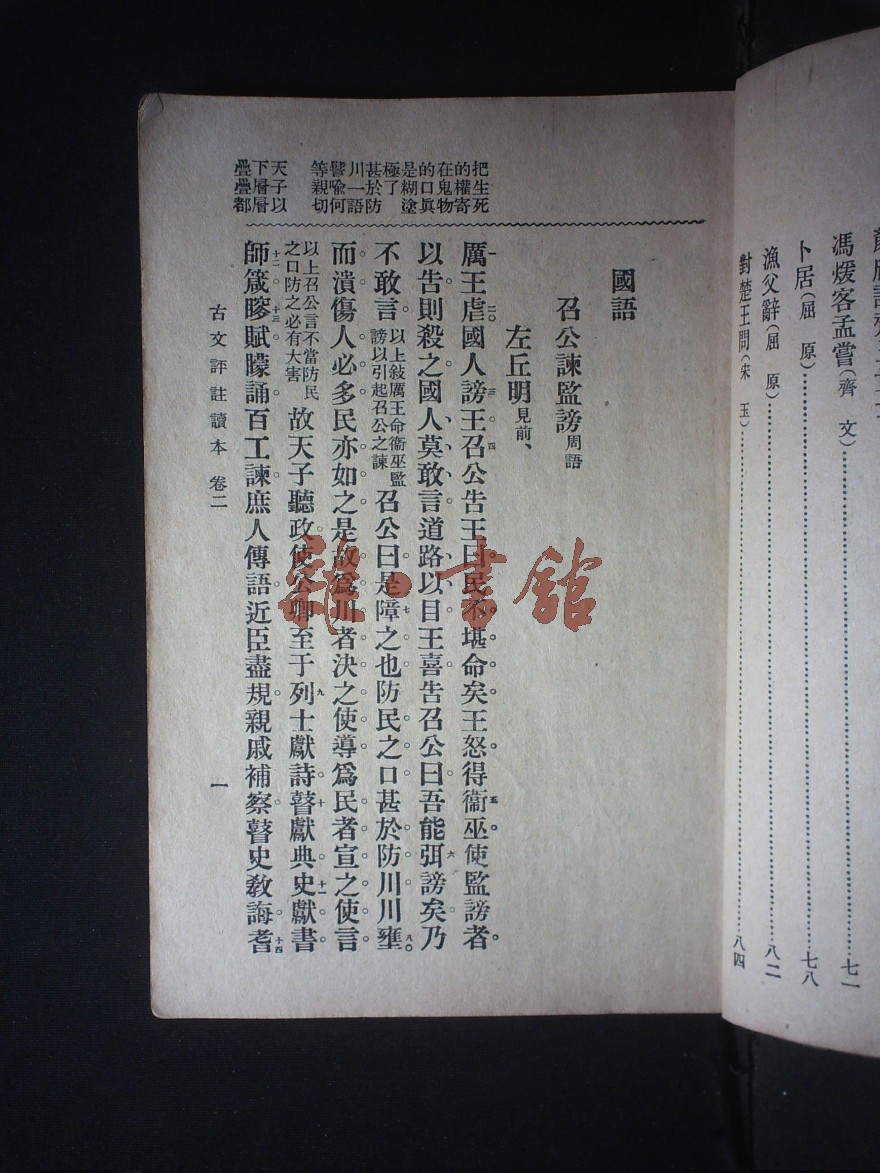 馮煖客孟嘗(齊 文)……七一
卜居(屈 原)……七八
漁父辭(屈 原)……八二
對楚王問(宋 玉)……八四
把生死
的權寄
在鬼物
的口眞
是糊塗
極了
甚於防
川一語
譬喻何
等親切
天子以
下層層
疊疊都
國語
召公諫監謗周語
左丘明見前、
厲王虐國人謗王召公告王曰民不堪命矣王怒得衞巫使監謗者
以告則殺之國人莫敢言道路以目王喜告召公曰吾能弭謗矣乃
不敢言以上敍厲王命衞巫監謗以引起召公之諫召公曰是障之也防民之口甚於防川川壅
而潰傷人必多民亦如之是故爲川者決之使導爲民者宣之使言
以上召公言不當防民之口防之必有大害故天子聽政使公卿至于列士獻詩瞽獻典史獻書
師箴瞍賦矇誦百工諫庶人傳語近臣盡規親戚補察瞽史敎誨耆
古文評註讀本 卷二
一
雜·書館